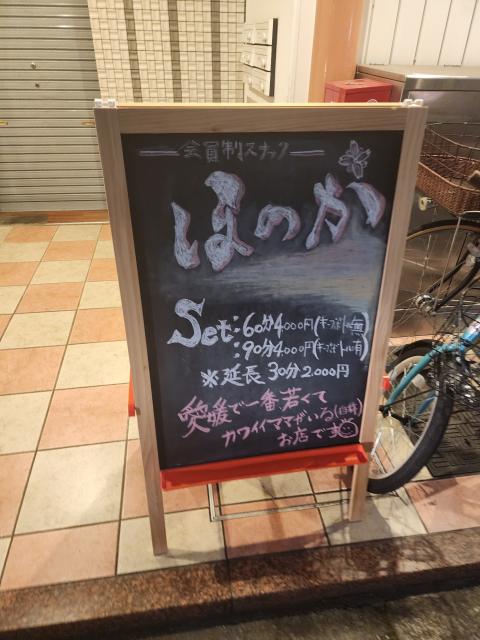 会員制スナック
ほのか
Set:60分4000円(キープボトル無)
:90分4000円(キープボトル有)
※延長30分2.000円
愛媛で一番若くて
カワイイママがいる(自称)
お店です